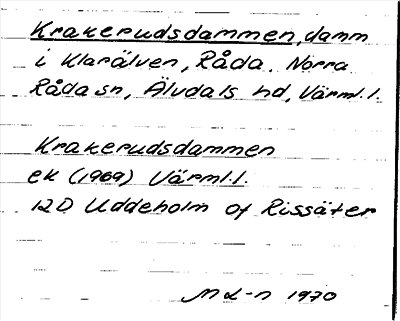 Krakerudsdammen, damm
i Klarälven, Råda. Norra
Råda sn, Älvdals hd, Värml. l.
Krakerudsdammen
ek (1969) Värml. l.
12D Uddeholm of Rissäter
M L-n 1970